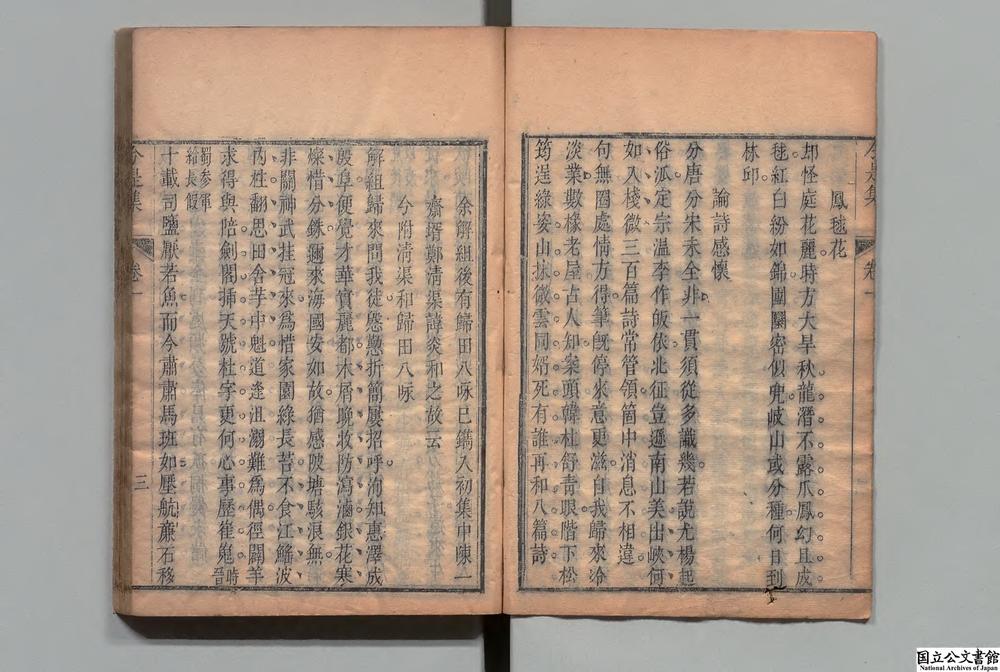 鳳毬花
却怪庭花麗時方大旱秋龍潛不露爪鳳幻且成
毬紅白紛如錦團圞密似兜岐山或分種何日到
林邱
論詩感懷
分唐分宋禾全非一貫須從多識幾若說尤楊起
俗派定宗溫李作皈依北征豈遜南山美出峽何
如入棧微三百篇詩常管領箇中消息不相違
句無圈處情方得筆旣停來意更滋自我歸來泠
淡業數椽老屋古人知案頭韓杜舒青眼階下松
筠逞綠姿山抹微雲同婿死有誰再和八篇詩
余解組後有歸田八咏已鐫入初集中陳一
齋壻鄭淸渠諱炎和之故云
兮附淸渠和歸田八咏
解組歸來問我徒慇懃折簡屢招呼洵知惠澤成
殷阜便覺才華實麗都木屑晚收防瀉滷銀花寒
燦惜分銖邇來海國安如故猶感陂塘駭浪無
非關神武挂冠來爲惜家園綠長苔不食江鰩波
丙姓翻思田舍芋中魁道逢沮溺難爲偶徑闢羊
求得與陪劍閣插天號杜宇更何心事歷崔嵬時晉
蜀參軍
給長假
十載司鹽厭若魚而今肅肅馬班如壓航亷石移
今是集
卷一
三
国立公文書館
National Archives of Japan